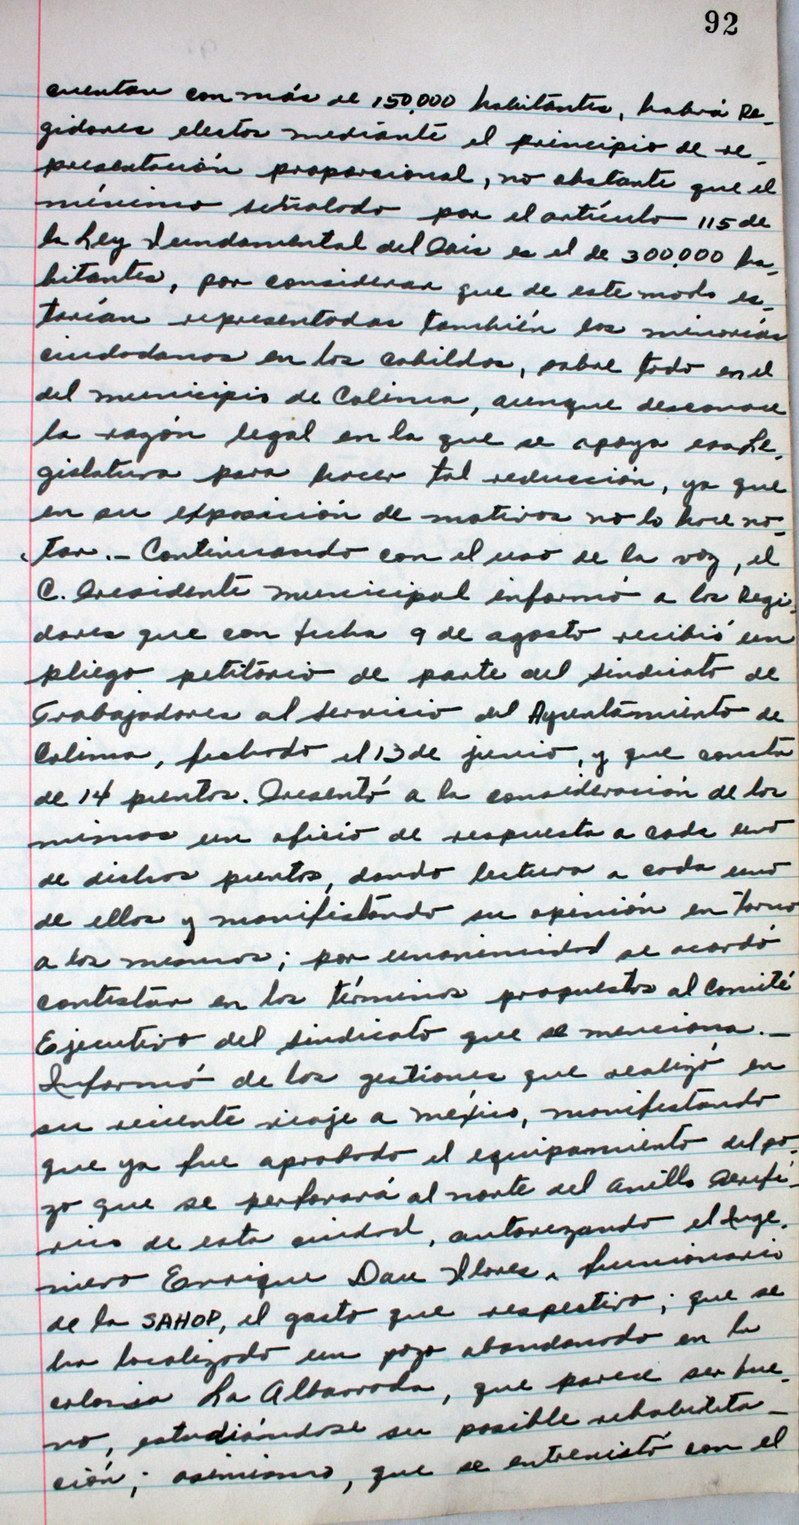 92
cuentan con más de 150,000 habitantes, habrá Re-
gidores electos mediante el principio de re-
presentación proporcional, no obstante que el
mínimo señalado por el artículo 115 de
la Ley Fundamental del País es el de 300,000 ha-
bitantes, por considerar que de este modo es-
tarían representadas también las minorías
ciudadanas en los cabildos, sobre todo en el
del municipio de Colima, aunque desconoce
la razón legal en la que se apoya esa Le-
gislatura para hacer tal reducción, ya que
en su exposición de motivos no lo hace no-
tar.- Continuando con el uso de la voz, el
C. Presidente Municipal informó a los Regi-
dores que con fecha 9 de agosto recibió un
pliego petitorio de parte del Sindicato de
Trabajadores al Servicio del Ayuntamiento de
Colima, fechado el 13 de junio, y que consta
de 14 puntos. Presentó a la consideración de los
mismos un oficio de respuesta a cada uno
de dichos puntos, dando lectura a cada uno
de ellos y manifestando su opinión en torno
a los mismos; por unanimidad se acordó
contestar en los términos propuestos al Comité
Ejecutivo del Sindicato que se menciona.-
Informó de las gestiones que realizó en
su reciente viaje a México, manifestando
que ya fue aprobado el equipamiento del po-
zo que se perforará al norte del Anillo Perifé-
rico de esta ciudad, autorizando el Inge-
niero Enrique Dau Flores, funcionario
de la SAHOP, el gasto que respectivo; que se
ha localizado un pozo abandonado en la
colonia La Albarrada, que parece ser bue-
no, estudiándose su posible rehabilita-
ción; asimismo, que se entrevistó con el